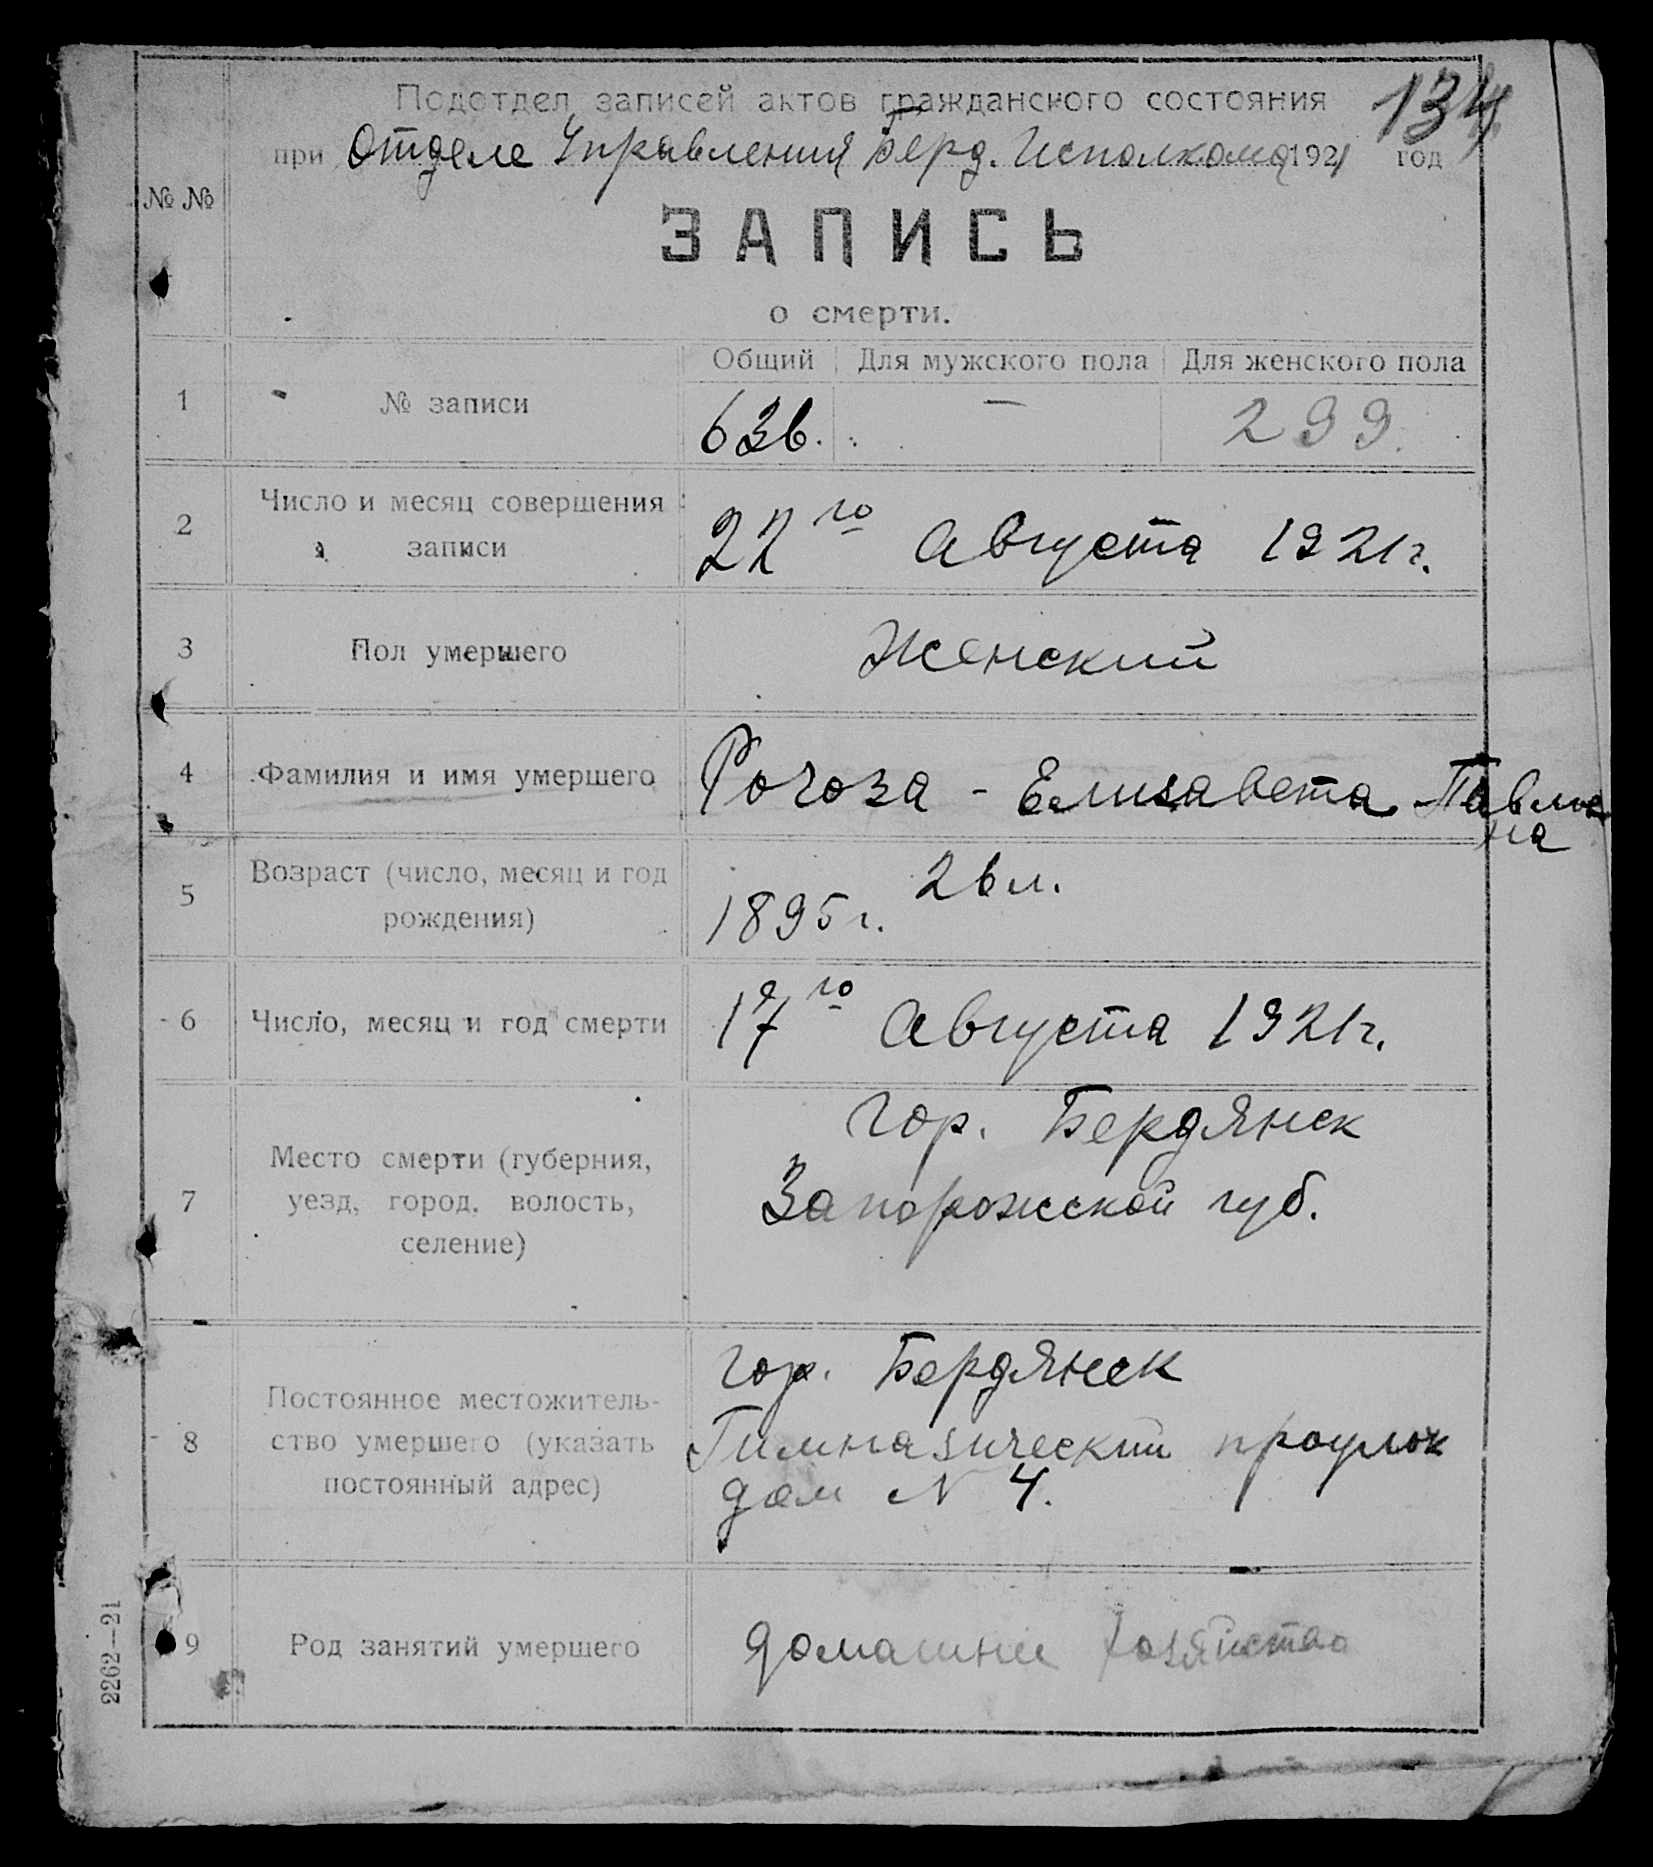 134
Подотдел записей актов гражданского состояния
при Отделе Управления Берд. Исполкома 1921 год
№ №
ЗАПИСЬ
о смерти.
Общий Для мужского пола Для женского пола
1 № записи 636. — 299.
2 Число и месяц совершения
записи 22го Августа 1921г.
3 Пол умершего Женский
4 Фамилия и имя умершего Рогоза - Елизавета Павлов
на
5 Возраст (число, месяц и год
рождения) 1895г. 26 л.
6 Число, месяц и год смерти 17го Августа 1921г.
7 Место смерти (губерния,
уезд, город, волость,
селение)
гор. Бердянск
Запорожской губ.
8 Постоянное местожитель-
ство умершего (указать
постоянный адрес)
гор. Бердянск
Гимназический проулок
дом N 4.
9 Род занятий умершего домашнее хозяйство
2262—21